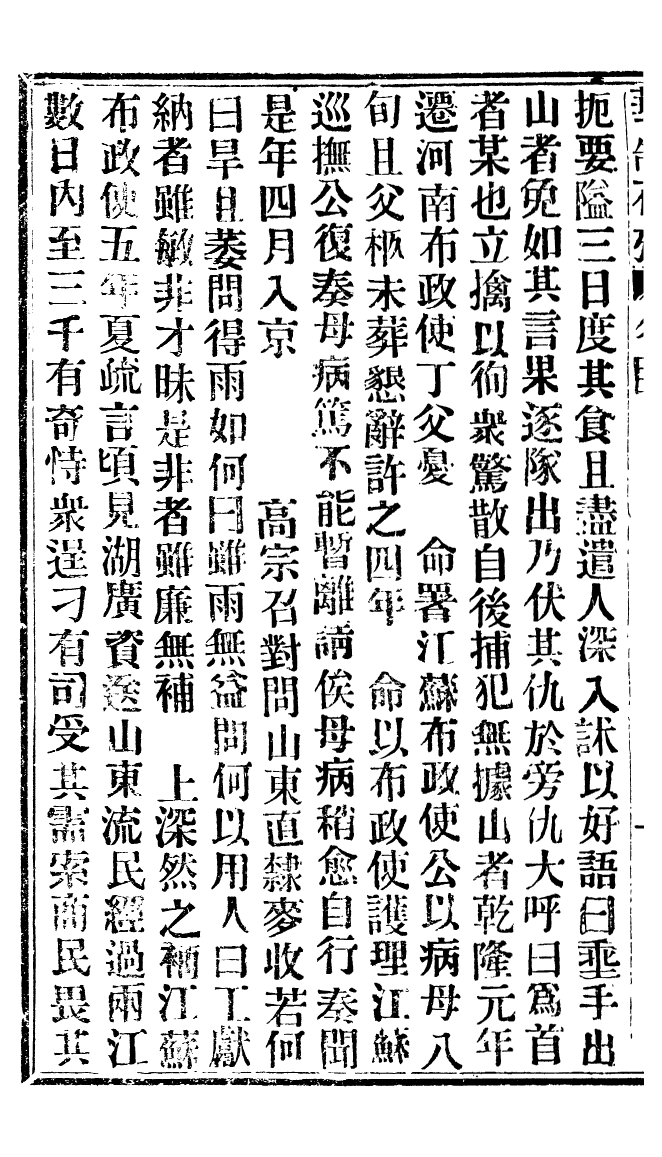 扼要隘三日度其食且盡遣人深入訹以好語曰埀手出
山者免如其言果逐隊出乃伏其仇於旁仇大呼曰爲首
者某也立擒以徇衆驚散自後捕犯無據山者乾隆元年
遷河南布政使丁父憂　命署江蘇布政使公以病母八
旬且父柩未葬懇辭許之四年　命以布政使護理江蘇
巡撫公復奏母病篤不能暫離請俟母病稍愈自行奏聞
是年四月入京　　　高宗召對問山東直隸麥收若何
曰旱且萎問得雨如何曰雖雨無益問何以用人曰工獻
納者雖敏非才昧是非者雖廉無補　上深然之補江蘇
布政使五年夏疏言頃見湖廣資送山東流民經過兩江
數日內至三千有奇恃衆逞刁有司受其需索商民畏其